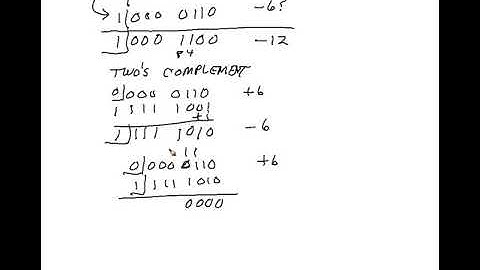 1 000 0110 -6?
1 000 1100 -12
84
TWO'S COMPLEMENT
0 000 0110 +6
1 111 1001
+1
1 111 1010 -6
11
0 000 0110 +6
1 111 1010
0000